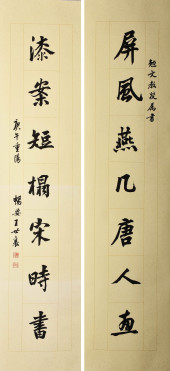 勉文教授屬書
屏風燕几唐人畫
漆案短榻宋時書
庚午重陽
暢安王世襄